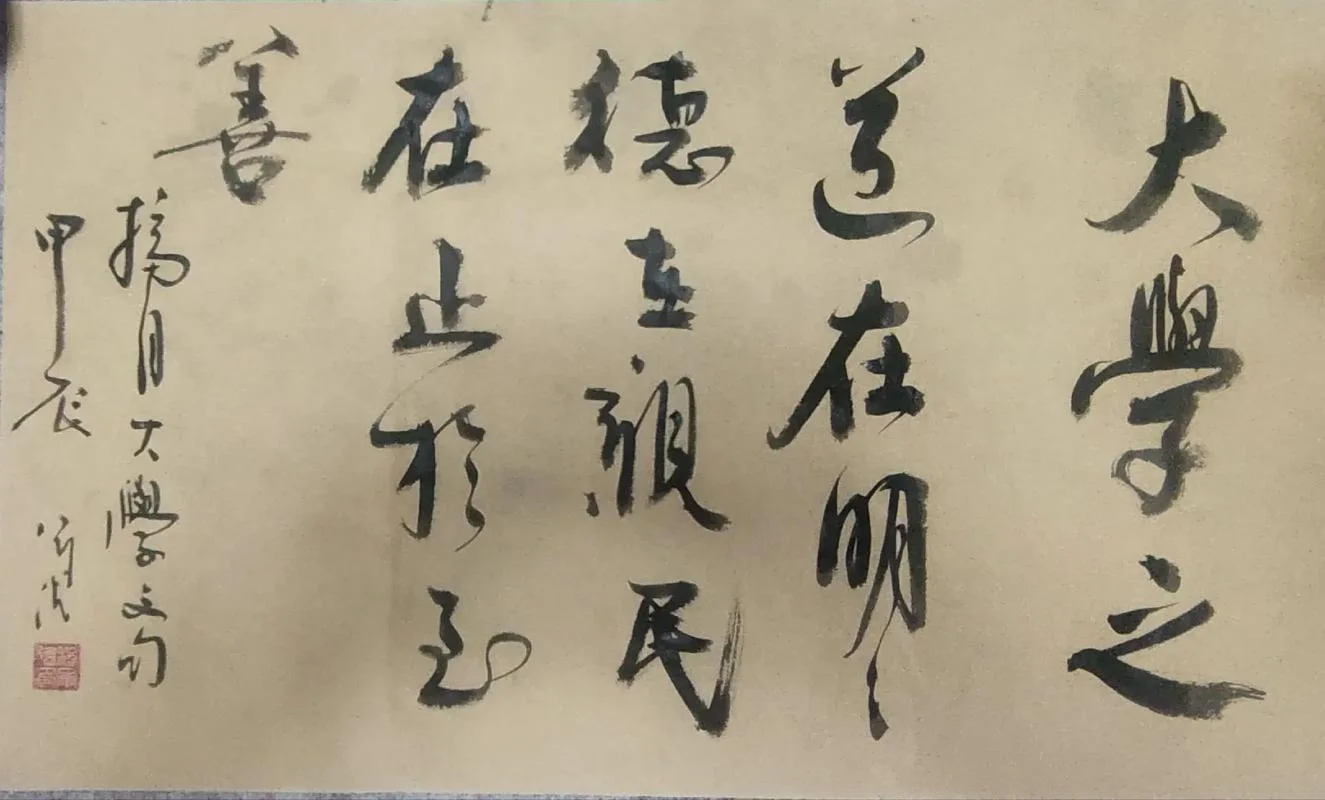 大學之
道在明〻
德在親民
在止於至
善
摘自大學文句
甲辰